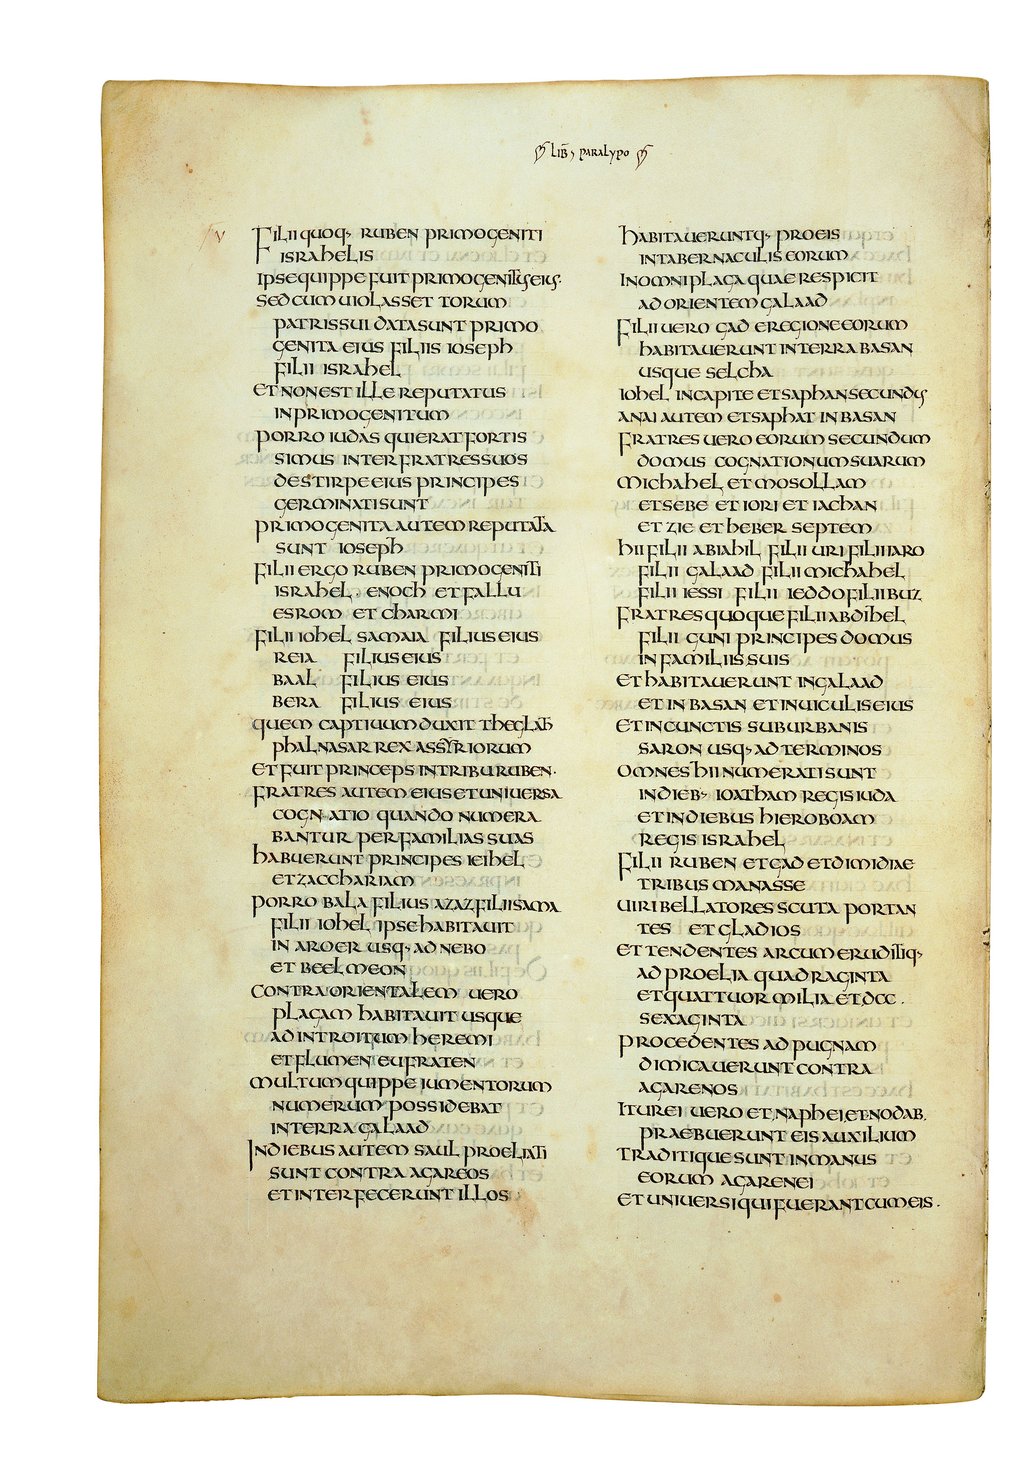 LIB, PARALYPO
V
FILII QUOQ, RUBEN PRIMOGENITI
ISRAHELIS
IPSE QUIPPE FUIT PRIMOGENITUS EIUS.
SED CUM UIOLASSET TORUM
PATRIS SUI DATA SUNT PRIMO
GENITA EIUS FILIIS IOSEPH
FILII ISRAHEL
ET NON EST ILLE REPUTATUS
IN PRIMOGENITUM
PORRO IUDAS QUI ERAT FORTIS
SIMUS INTER FRATRES SUOS
DE STIRPE EIUS PRINCIPES
GERMINATI SUNT
PRIMOGENITA AUTEM REPUTATA
SUNT IOSEPH
FILII ERGO RUBEN PRIMOGENITI
ISRAHEL. ENOCH ET FALLU
ESROM ET CHARMI
FILII IOHEL SAMAIA FILIUS EIUS
REIA FILIUS EIUS
BAAL FILIUS EIUS
BERA FILIUS EIUS
QUEM CAPTIUUM DUXIT THEGLATH
PHALNASAR REX ASSYRIORUM
ET FUIT PRINCEPS IN TRIBU RUBEN.
FRATRES AUTEM EIUS ET UNIUERSA
COGNATIO QUANDO NUMERA
BANTUR PER FAMILIAS SUAS
HABUERUNT PRINCIPES IEIHEL
ET ZACCHARIAM
PORRO BALA FILIUS AZAZ FILII SAMA
FILII IOHEL IPSE HABITAUIT
IN AROER USQ, AD NEBO
ET BEELMEON
CONTRA ORIENTALEM UERO
PLAGAM HABITAUIT USQUE
AD INTROITUM HEREMI
ET FLUMEN EUFRATEN
MULTUM QUIPPE IUMENTORUM
NUMERUM POSSIDEBAT
IN TERRA GALAAD
IN DIEBUS AUTEM SAUL PROELIATI
SUNT CONTRA AGAREOS
ET INTERFECERUNT ILLOS
HABITAUERUNTQ, PRO EIS
IN TABERNACULIS EORUM
IN OMNI PLAGA QUAE RESPICIT
AD ORIENTEM GALAAD
FILII UERO GAD E REGIONE EORUM
HABITAUERUNT IN TERRA BASAN
USQUE SELCHA
IOHEL IN CAPITE ET SAPHAN SECUNDUS
ANAI AUTEM ET SAPHAT IN BASAN
FRATRES UERO EORUM SECUNDUM
DOMUS COGNATIONUM SUARUM
MICHAHEL ET MOSOLLAM
ET SEBE ET IORI ET IACHAN
ET ZIE ET HEBER SEPTEM
HII FILII ABIAHIL FILII URI FILII IARO
FILII GALAAD FILII MICHAHEL
FILII IESSI FILII IEDDO FILII BUZ
FRATRES QUOQUE FILII ABDIHEL
FILII GUNI PRINCIPES DOMUS
IN FAMILIIS SUIS
ET HABITAUERUNT IN GALAAD
ET IN BASAN ET IN UICULIS EIUS
ET IN CUNCTIS SUBURBANIS
SARON USQ, AD TERMINOS
OMNES HII NUMERATI SUNT
IN DIEB, IOATHAM REGIS IUDA
ET IN DIEBUS HIEROBOAM
REGIS ISRAHEL
FILII RUBEN ET GAD ET DIMIDIAE
TRIBUS MANASSE
UIRI BELLATORES SCUTA PORTAN
TES ET GLADIOS
ET TENDENTES ARCUM ERUDITIQ,
AD PROELIA QUADRAGINTA
ET QUATTUOR MILIA ET DCC.
SEXAGINTA
PROCEDENTES AD PUGNAM
DIMICAUERUNT CONTRA
AGARENOS
ITUREI UERO ET NAPHEI ET NODAB.
PRAEBUERUNT EIS AUXILIUM
TRADITIQUE SUNT IN MANUS
EORUM AGARENEI
ET UNIUERSI QUI FUERANT CUM EIS.